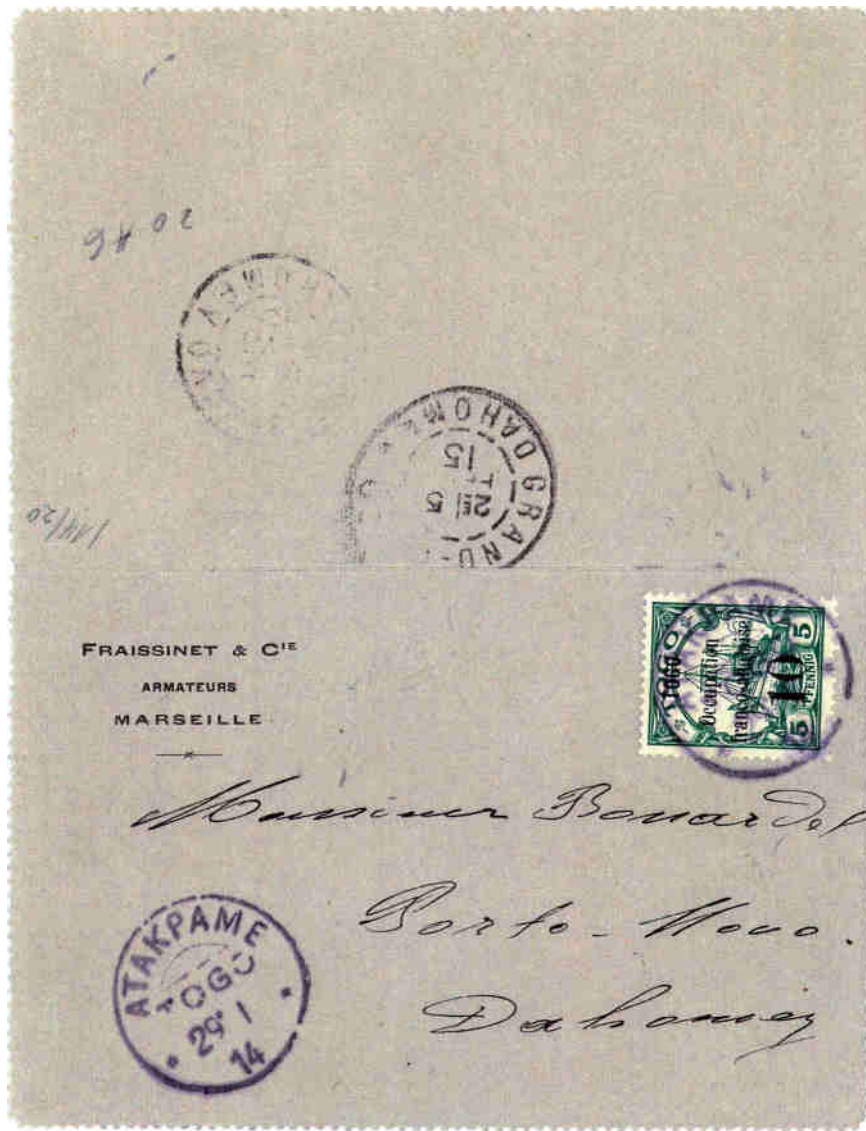 20 A6
DAHOMEY
GRAND-
DAHOMEY
2E 5
15
114/20
FRAISSINET & CIE
ARMATEURS
MARSEILLE
TOGO
TOGO
Occupation
franco-anglaise
10
5 PFENNIG 5
Monsieur Bonardel
Porto-Novo.
Dahomey
ATAKPAME
TOGO
29 1
14